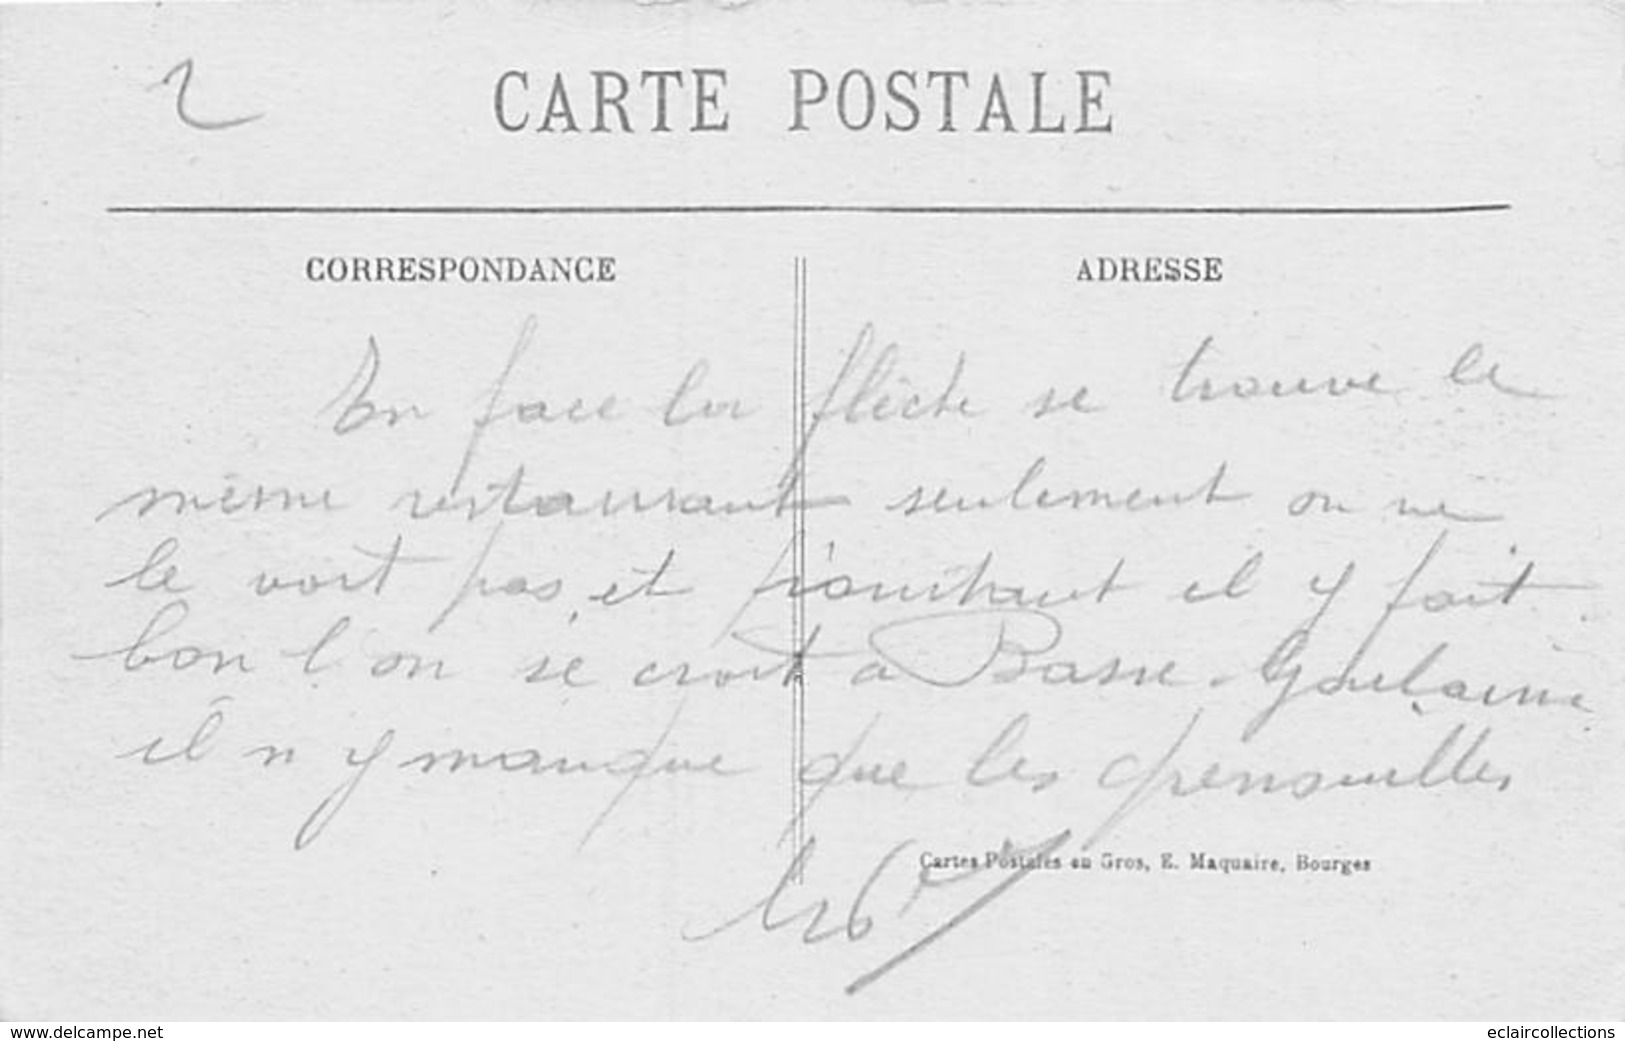 2
CARTE POSTALE
CORRESPONDANCE
ADRESSE
En face la flèche se trouve le
même restaurant seulement on ne
le voit pas, et pourtant il y fait
bon l'on se croit a Basse-Goulaine
il n y manque que les grenouilles
Cartes Postales en Gros, E. Maquaire, Bourges
www.delcampe.net
eclaircollections